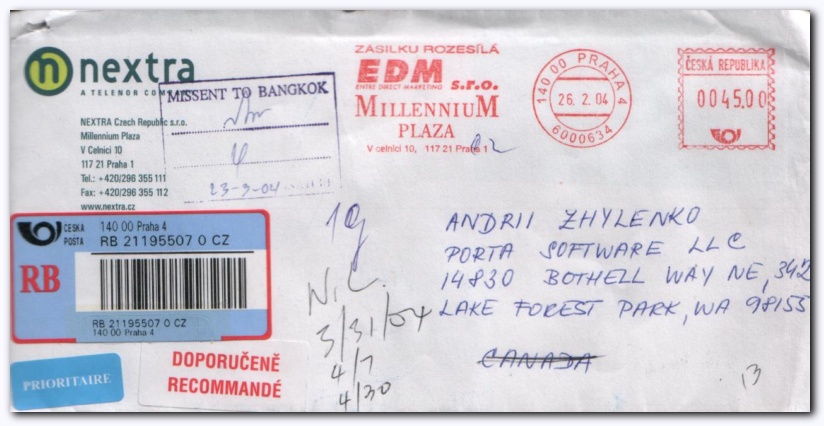 nextra
A TELENOR COM
MISSENT TO BANGKOK
23-3-04
NEXTRA Czech Republic s.r.o.
Millennium Plaza
V Celnici 10
117 21 Praha 1
Tel.: +420/296 355 111
Fax: +420/296 355 112
www.nextra.cz
ZÁSILKU ROZESÍLÁ
EDM s.r.o.
ENTRE DIRECT MARKETING
MILLENNIUM
PLAZA
V celnici 10, 117 21 Praha 1
140 00 PRAHA 4
26. 2. 04
6000634
ČESKÁ REPUBLIKA
0045,00
ČESKÁ POŠTA
140 00 Praha 4
RB 21195507 0 CZ
RB
RB 21195507 0 CZ
140 00 Praha 4
PRIORITAIRE
DOPORUČENĚ
RECOMMANDÉ
N.C.
3/31/04
4/7
4/30
ANDRII ZHYLENKO
PORTA SOFTWARE LLC
14830 BOTHELL WAY NE, 342
LAKE FOREST PARK, WA 98155
CANADA
13